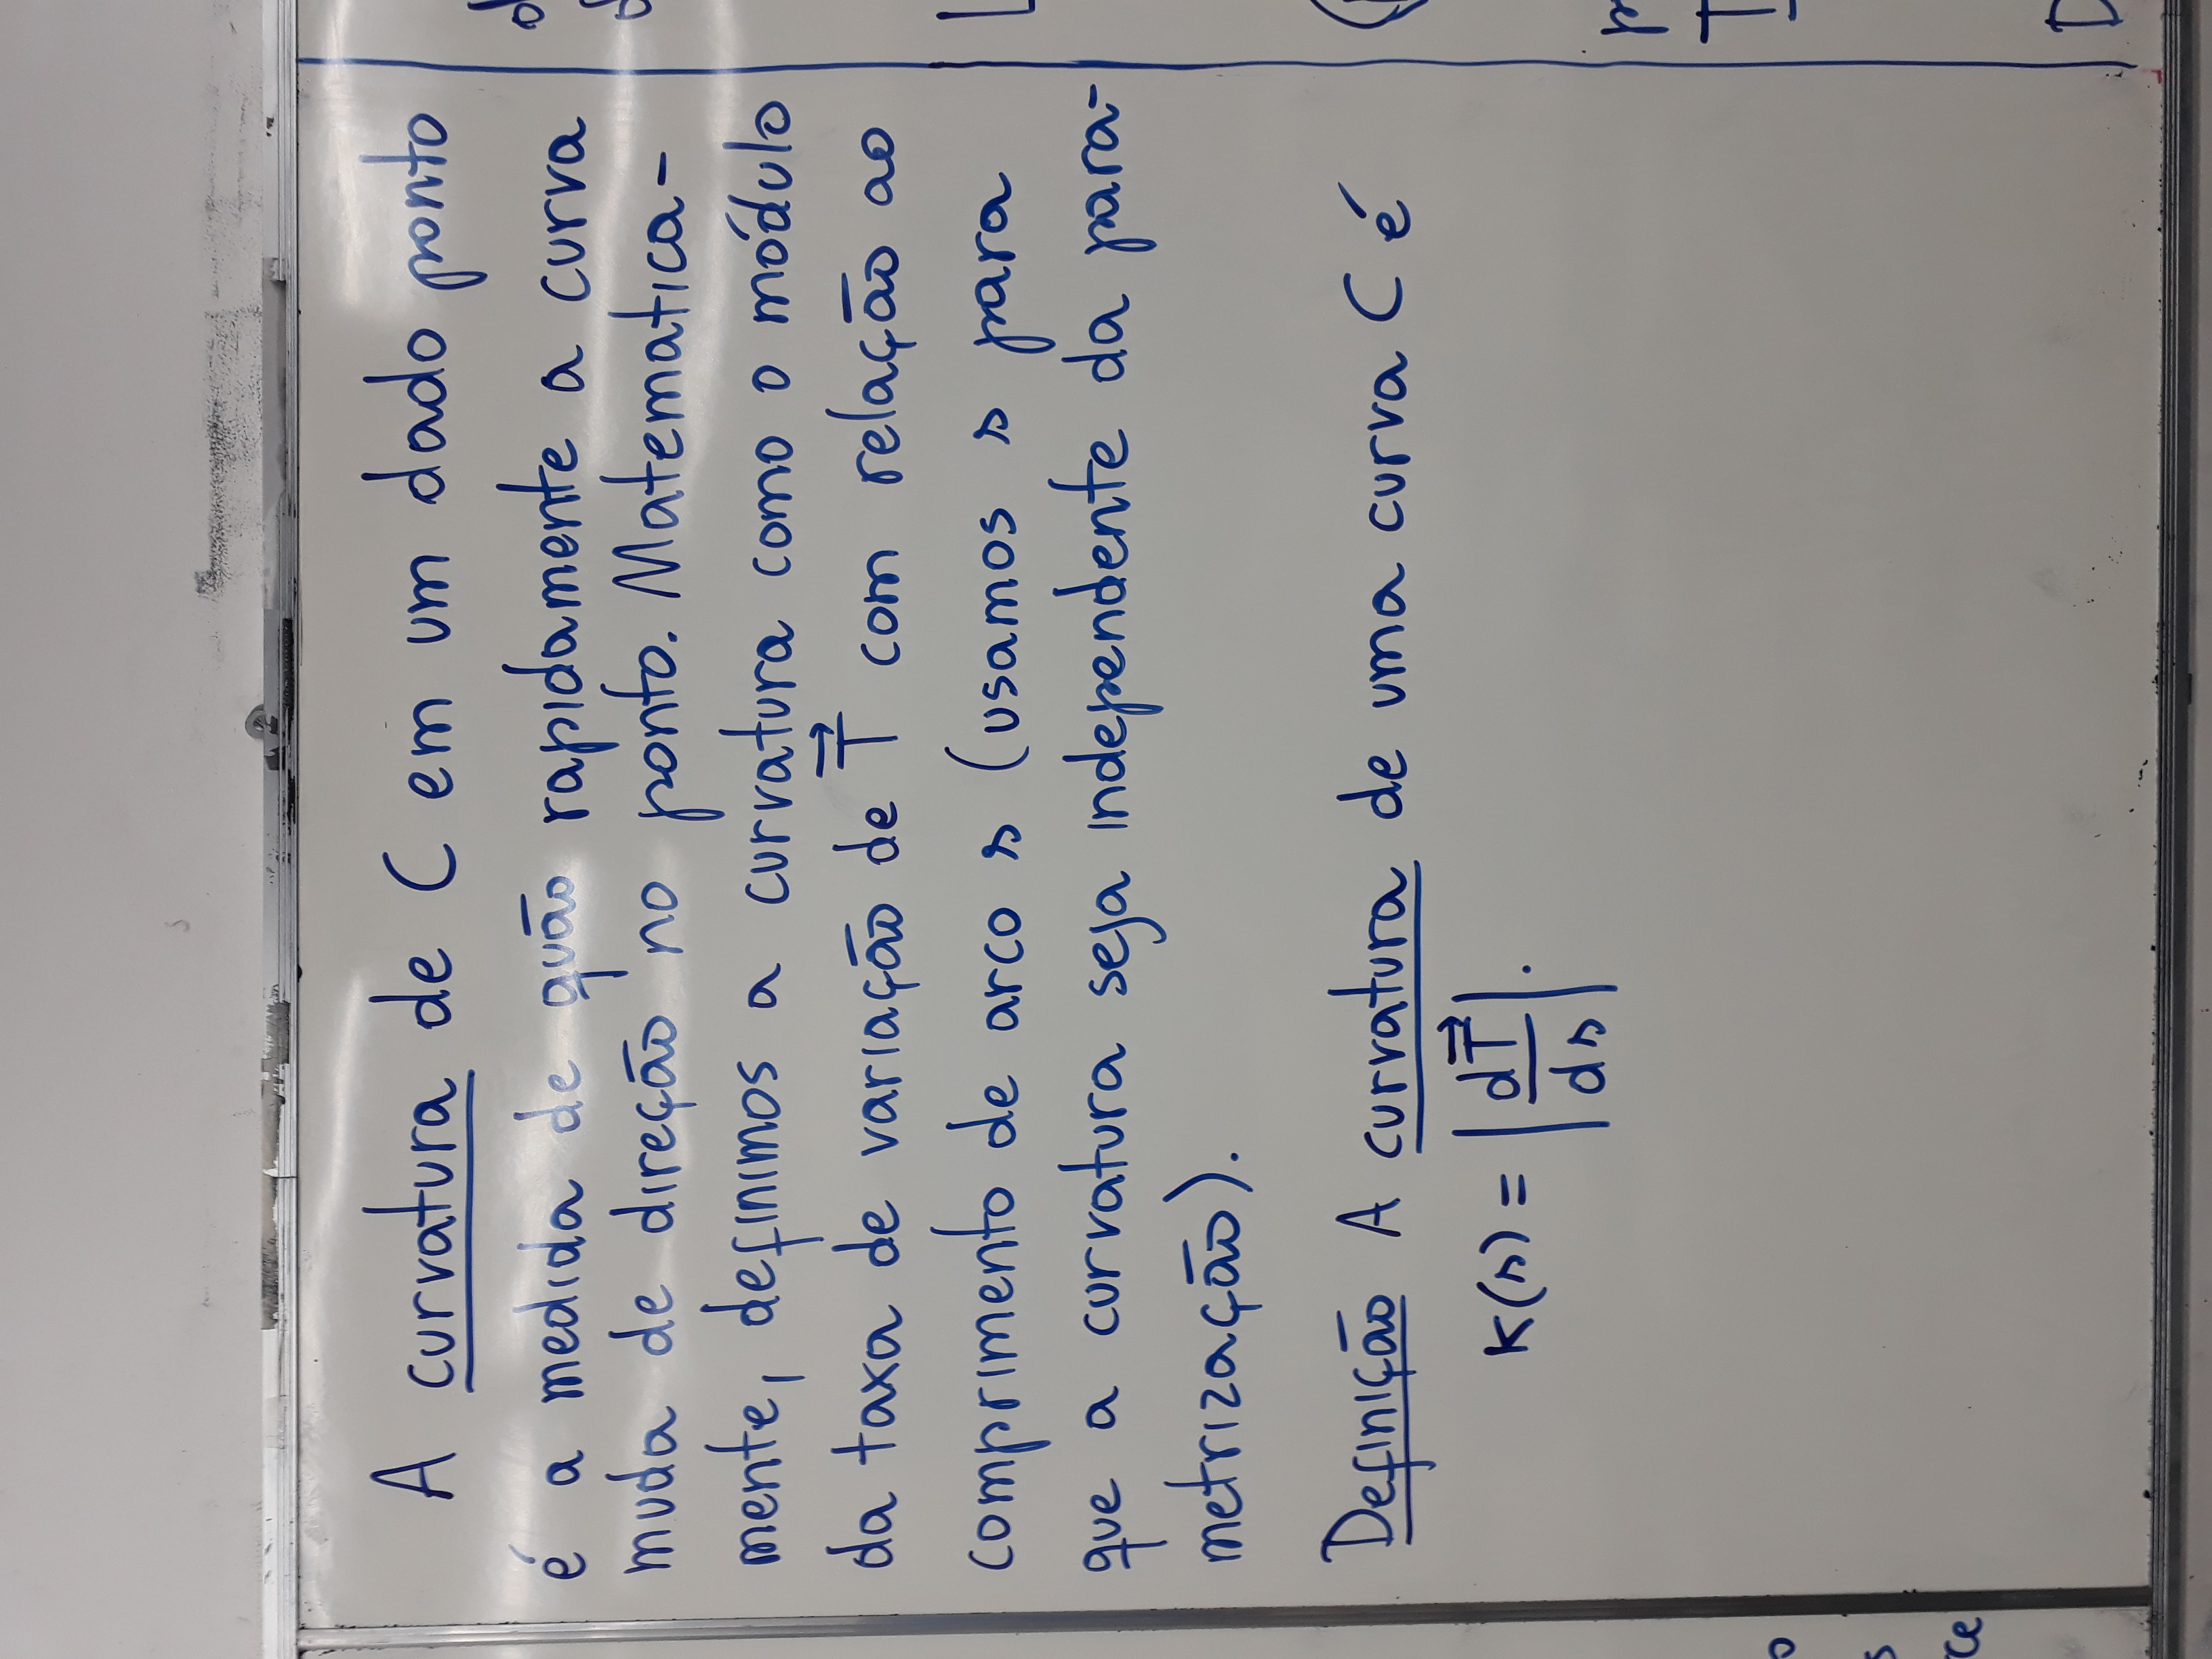 A curvatura de C em um dado ponto
é a medida de quão rapidamente a curva
muda de direção no ponto. Matematica-
mente, definimos a curvatura como o módulo
da taxa de variação de T⃗ com relação ao
comprimento de arco s (usamos s para
que a curvatura seja independente da para-
metrização).
Definição A curvatura de uma curva C é
κ(s) = |dT⃗/ds|.